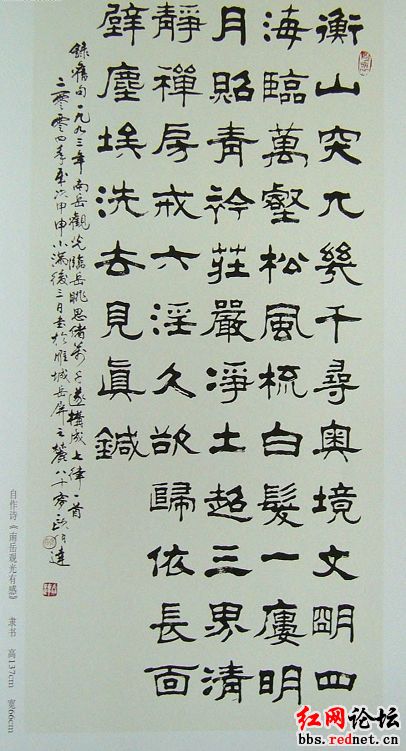 衡山突兀幾千尋奧境文朙四
海臨萬壑松風梳白髮一廔明
月照青衿莊嚴淨土超三界清
靜禪房戒六淫久欲歸依長面
壁塵埃洗去見真鍼
錄舊句一九九三年南岳觀光臨岳眺思緒萬千遂構成七律一首
二零零四年歲次甲申小滿後三日書於雁城岳屏之麓八十
自作诗《南岳观光有感》 隶书 高137cm 宽66cm
红网论坛
bbs.rednet.cn